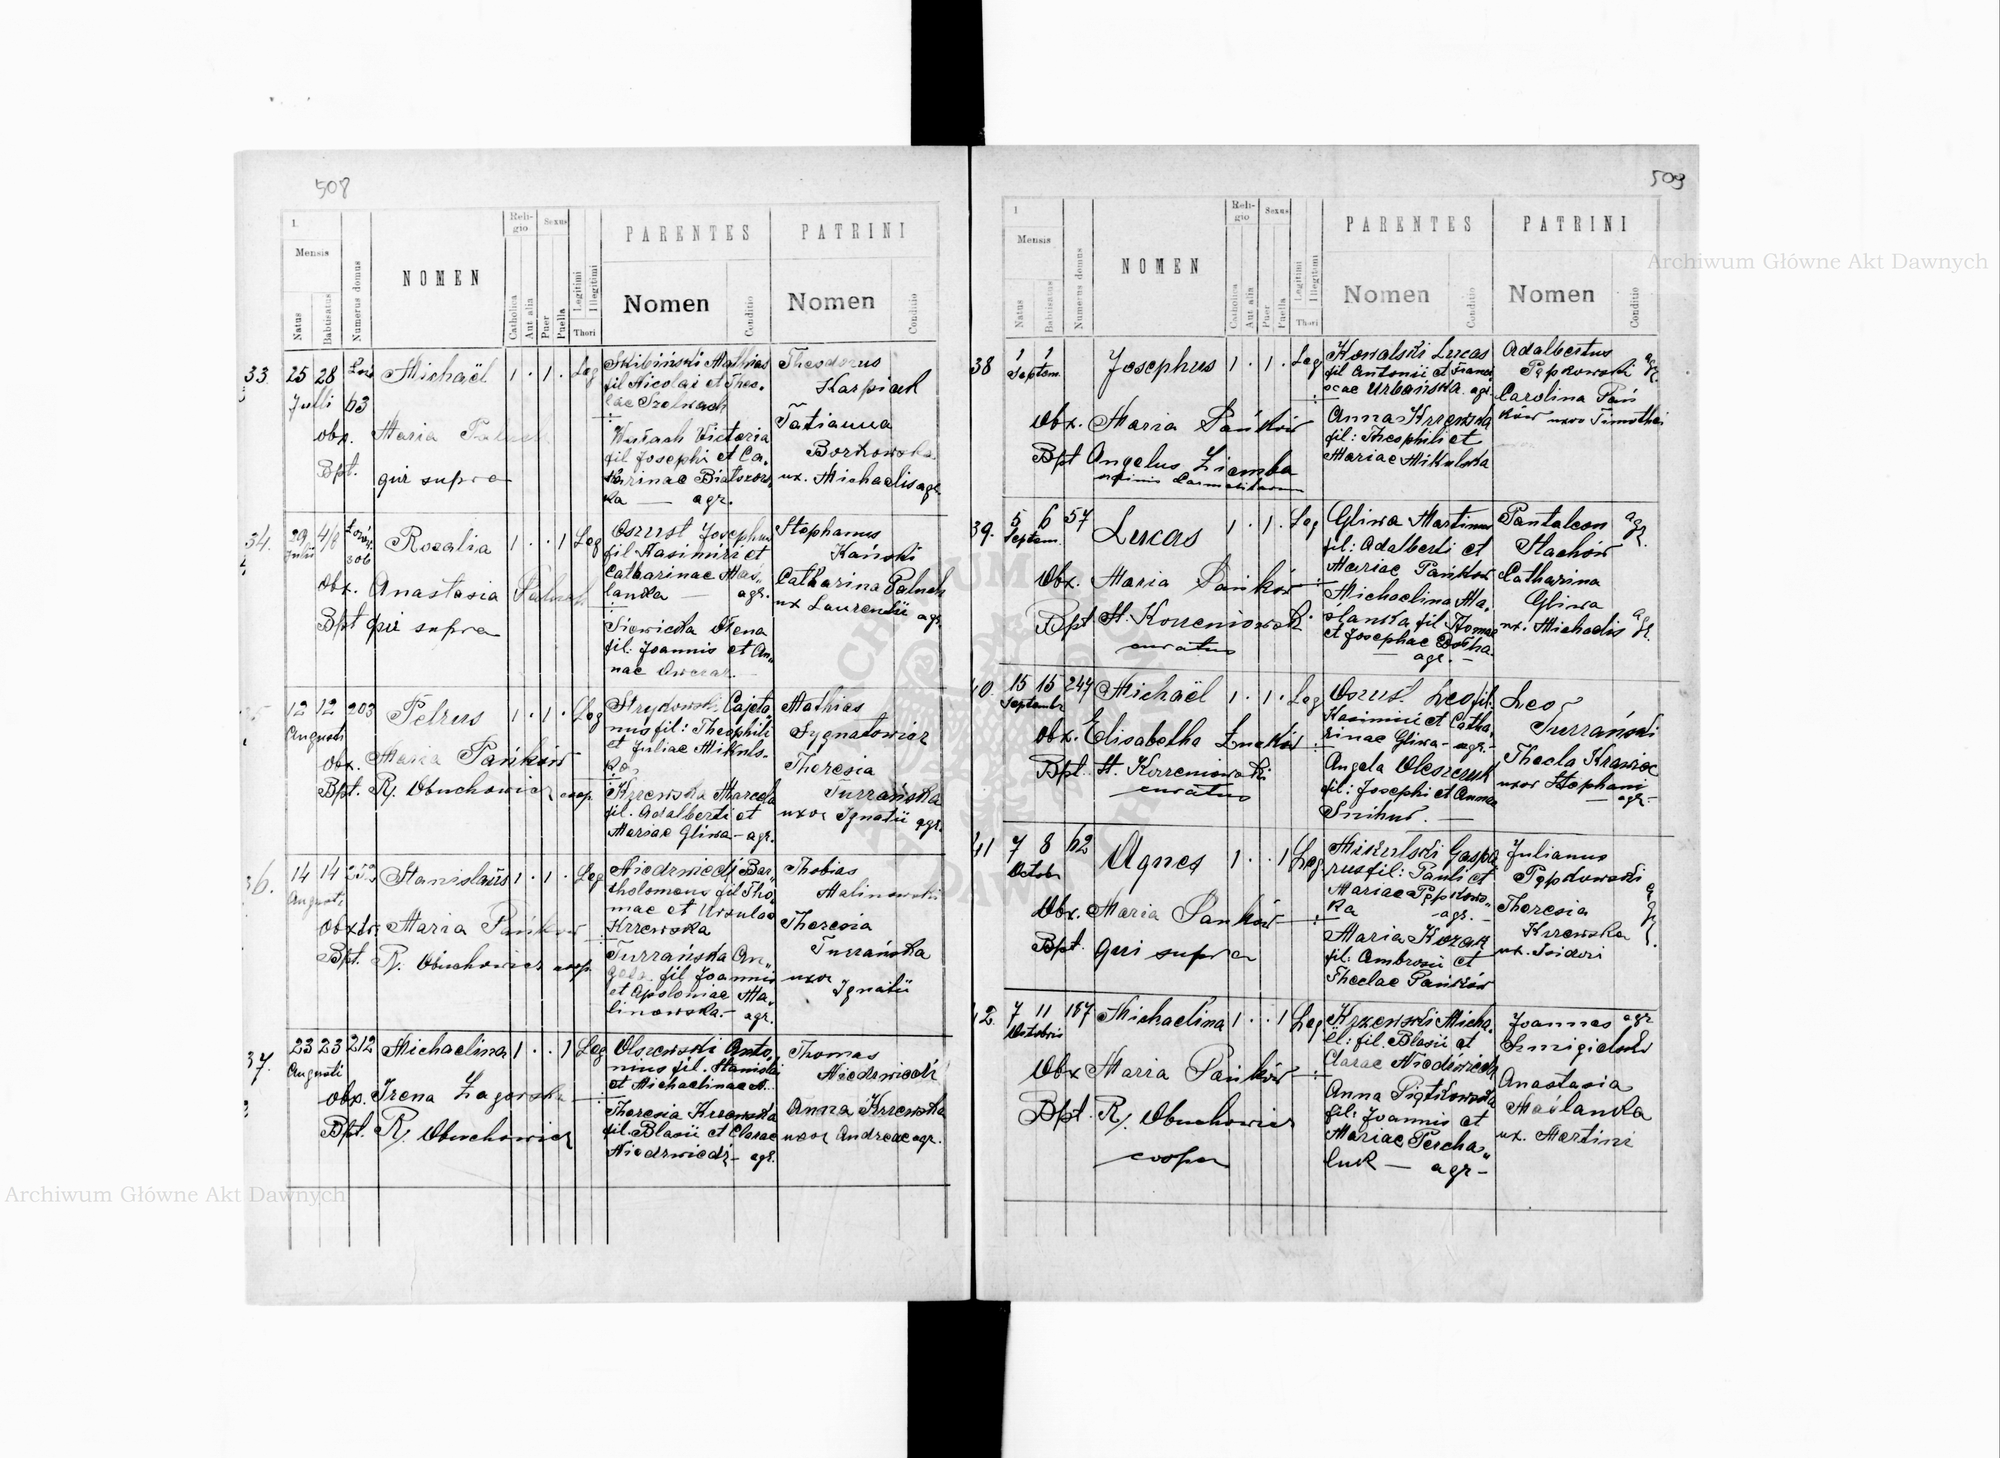 508
I.
Mensis
Natus
Babtisatus
Numerus domus
NOMEN
Reli-
gio
Catholica
Aut alia
Sexus
Puer
Puella
Legitimi
Illegitimi
Thori
PARENTES
Nomen
Conditio
PATRINI
Nomen
Conditio
33. 25 28 Michaël 1 . 1 . Leg
Julii 63
obx. Maria
Bpt. qui supra
Skibiński Mathias
fil Nicolai et Thec-
lae
Victoria
fil Josephi et Ca-
tharinae
agr.
Theodorus
Karpiak
Tatianna
Borkowska
ux. Michaelis agr.
34. 29 4/8 306 Rozalia 1 . . 1 Leg
Julii
Obx. Anastasia
Bpt qui supra
Oszust Josephus
fil Kasimiri et
Catharinae Maś-
lanka — agr.
fil. Joannis et An-
nae
Stephanus
Kański
Catharina Paluch
ux Laurentii agr.
12 12 203 Petrus 1 . 1 . Leg
Augusti
obx. Maria Pańków
Bpt. R. Obuchowicz coop.
Cajeta-
nus fil: Theophili
et Juliae Mikuls-
ka
Krzewska Marcela
fil. Adalberti et
Mariae Gliwa — agr.
Mathias
Sygnatowicz
Theresia
Turzańska
uxor Ignatii agr.
36. 14 14 Stanislaus 1 . 1 . Leg
Augusti
Obxtr. Maria Pańków
Bpt. R. Obuchowicz coop.
Niedźwiedź Bar-
tholomeus fil Tho-
mae et Ursulae
Krzewska
Turzańska An-
gela fil Joannis
et Apoloniae Ma-
linowska. — agr.
Thobias
Malinowski
Theresia
Turzańska
uxor
Ignatii
37. 23 23 212 Michaelina 1 . . 1 Leg
Augusti
obx. Irena Zagorska
Bpt. R. Obuchowicz
Olszewski Anto-
nius fil. Stanislai
et Michaelinae
Theresia Krzewska
fil. Blasii et Clarae
Niedźwiedź — agr.
Thomas
Niedźwiedź
Anna Krzewska
uxor Andreae agr.
509
I
Mensis
Natus
Babtisatus
Numerus domus
NOMEN
Reli-
gio
Catholica
Aut alia
Sexus
Puer
Puella
Legitimi
Illegitimi
Thori
PARENTES
Nomen
Conditio
PATRINI
Nomen
Conditio
38 1 1 Josephus 1 . 1 . Leg
Septem.
Obx. Maria Pańków
Bpt Angelus Ziemba
Kowalski Lucas
fil Antonii et Franci-
scae Urbańska agr.
Anna Krzewska
fil: Theophili et
Mariae Mikulska
Adalbertus
Pępkowski agr.
Carolina Pań
ków uxor Timothei
39. 5 6 57 Lucas 1 . 1 . Leg
Septem.
Obx. Maria Pańków
Bpt St. Korzeniowski
curatus
Gliwa Martinus
fil: Adalberti et
Mariae Pańków
Michaelina Ma-
ślanka fil Thomae
et Josephae
agr. —
Pantaleon agr.
Stachów
Catharina
Gliwa
ux. Michaelis agr.
15 15 247 Michaël 1 . 1 . Leg
Septembr.
obx. Elisabetha
Bpt. St. Korzeniowski
curatus
Oszust Leo fil.
Kasimiri et Catha-
rinae Gliwa — agr. —
Angela Oleszczuk
fil: Josephi et Annae
Snihur. —
Leo
Turzański
Thecla Krawiec
uxor Stephani
— agr. —
41 7 8 62 Agnes 1 . . 1 Leg
Octobr.
Obx. Maria Pańków
Bpt. qui supra
Mikulski Gaspa-
rus fil: Pauli et
Mariae Pępkows-
ka — agr. —
Maria Kozak
fil: Ambrosii et
Theclae Pańków
Julianus
Pępkowski
Theresia agr.
Krzewska
ux. Isidori
42. 7 11 187 Michaelina 1 . . 1 Leg
Octobris
Obx Maria Pańków
Bpt. R. Obuchowicz
cooper
Krzewski Micha-
ël: fil. Blasii et
Clarae Niedźwiedź
Anna Piątkowska
fil: Joannis et
Mariae Percha-
luk — agr —
Joannes agr
Śmigielski
Anastasia
Maślanka
ux. Martini
Archiwum Główne Akt Dawnych
Archiwum Główne Akt Dawnych